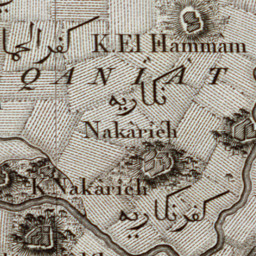 كفر الحما
K. El Hammam
QANIAT
نكاريه
Nakârieh
K. Nakârieh
كفر نكاريه